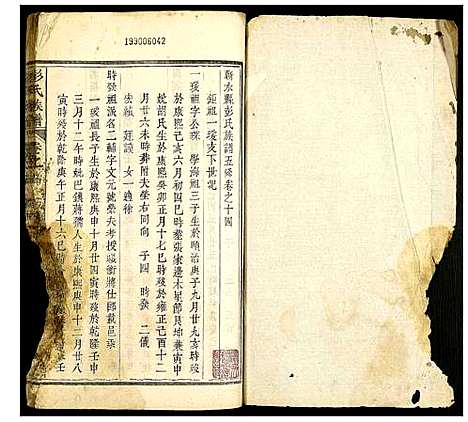 199006042
蘄水縣彭氏族譜五修卷之十四
鉅祖一瑷亥下世記
一瑷祖字公珠 學海祖三子生於順治庚子九月廿九亥時歿
於康熙己亥六月初四巳時葬張家邊木星節艮坤兼寅申
妣胡氏生於康熙癸卯正月十七巳時歿於雍正己酉十二
月廿六未時葬附夫塋右同向 子四 時發 二儀
宏 廷謨 女一適徐
時發祖派名二輔字文元號榮夫考授 衝將仕郎載邑乘
一瑷祖長子生於康熙庚申十月廿四寅時歿於乾隆壬申
三月十二午時妣巴鎮蔣孺人生於康熙庚申十二月廿八
寅時歿於乾隆庚午正月十六巳時
彭氏族譜 卷之十四